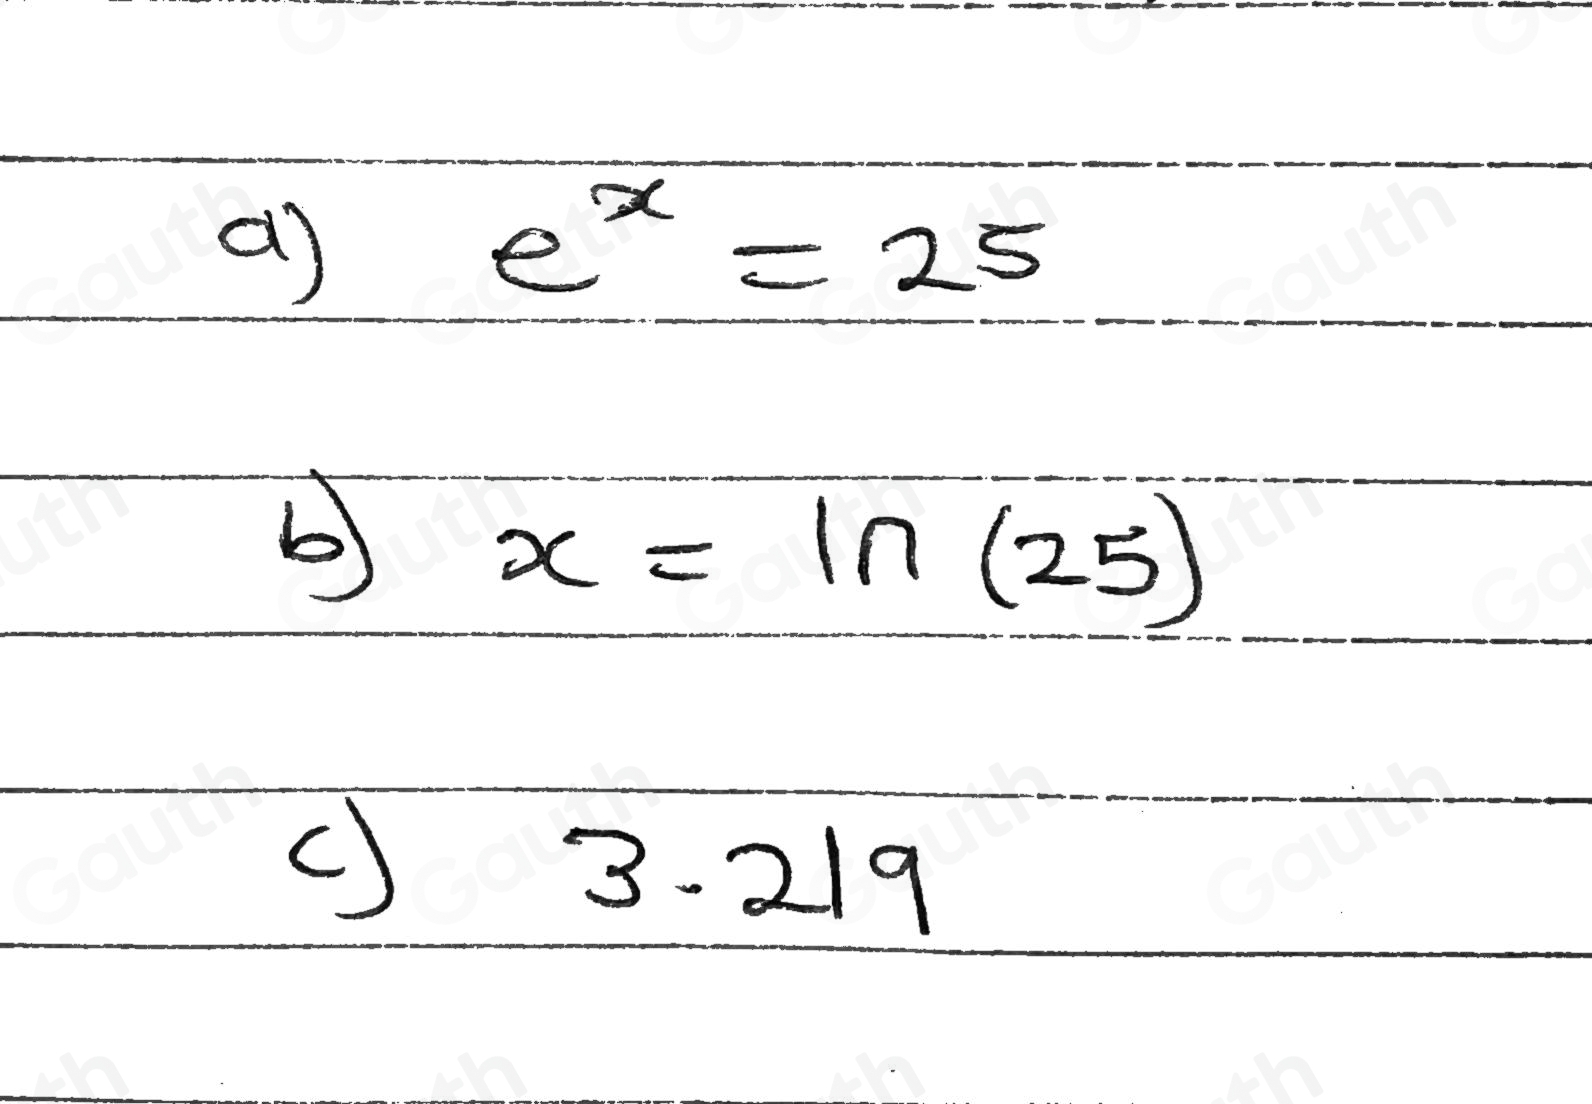 a) eˣ = 25
b) x = ln (25)
c) 3.219